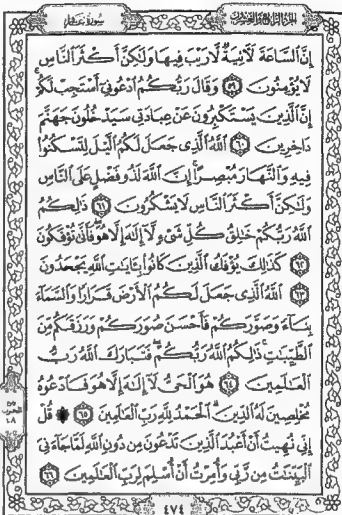 الجزء الرابع والعشرون سورة غافر
إِنَّ ٱلسَّاعَةَ لَأٓتِيَةٌ لَّا رَيْبَ فِيهَا وَلَٰكِنَّ أَكْثَرَ ٱلنَّاسِ
لَا يُؤْمِنُونَ ٥٩ وَقَالَ رَبُّكُمُ ٱدْعُونِىٓ أَسْتَجِبْ لَكُمْ
إِنَّ ٱلَّذِينَ يَسْتَكْبِرُونَ عَنْ عِبَادَتِى سَيَدْخُلُونَ جَهَنَّمَ
دَاخِرِينَ ٦٠ ٱللَّهُ ٱلَّذِى جَعَلَ لَكُمُ ٱلَّيْلَ لِتَسْكُنُوا۟
فِيهِ وَٱلنَّهَارَ مُبْصِرًا إِنَّ ٱللَّهَ لَذُو فَضْلٍ عَلَى ٱلنَّاسِ
وَلَٰكِنَّ أَكْثَرَ ٱلنَّاسِ لَا يَشْكُرُونَ ٦١ ذَٰلِكُمُ
ٱللَّهُ رَبُّكُمْ خَٰلِقُ كُلِّ شَىْءٍ لَّآ إِلَٰهَ إِلَّا هُوَ فَأَنَّىٰ تُؤْفَكُونَ
٦٢ كَذَٰلِكَ يُؤْفَكُ ٱلَّذِينَ كَانُوا۟ بِـَٔايَٰتِ ٱللَّهِ يَجْحَدُونَ
٦٣ ٱللَّهُ ٱلَّذِى جَعَلَ لَكُمُ ٱلْأَرْضَ قَرَارًا وَٱلسَّمَآءَ
بِنَآءً وَصَوَّرَكُمْ فَأَحْسَنَ صُوَرَكُمْ وَرَزَقَكُم مِّنَ
ٱلطَّيِّبَٰتِ ذَٰلِكُمُ ٱللَّهُ رَبُّكُمْ فَتَبَارَكَ ٱللَّهُ رَبُّ
ٱلْعَٰلَمِينَ ٦٤ هُوَ ٱلْحَىُّ لَآ إِلَٰهَ إِلَّا هُوَ فَٱدْعُوهُ
مُخْلِصِينَ لَهُ ٱلدِّينَ ٱلْحَمْدُ لِلَّهِ رَبِّ ٱلْعَٰلَمِينَ ٦٥ ۞ قُلْ
إِنِّى نُهِيتُ أَنْ أَعْبُدَ ٱلَّذِينَ تَدْعُونَ مِن دُونِ ٱللَّهِ لَمَّا جَآءَنِىَ
ٱلْبَيِّنَٰتُ مِن رَّبِّى وَأُمِرْتُ أَنْ أُسْلِمَ لِرَبِّ ٱلْعَٰلَمِينَ ٦٦
٤٧٤